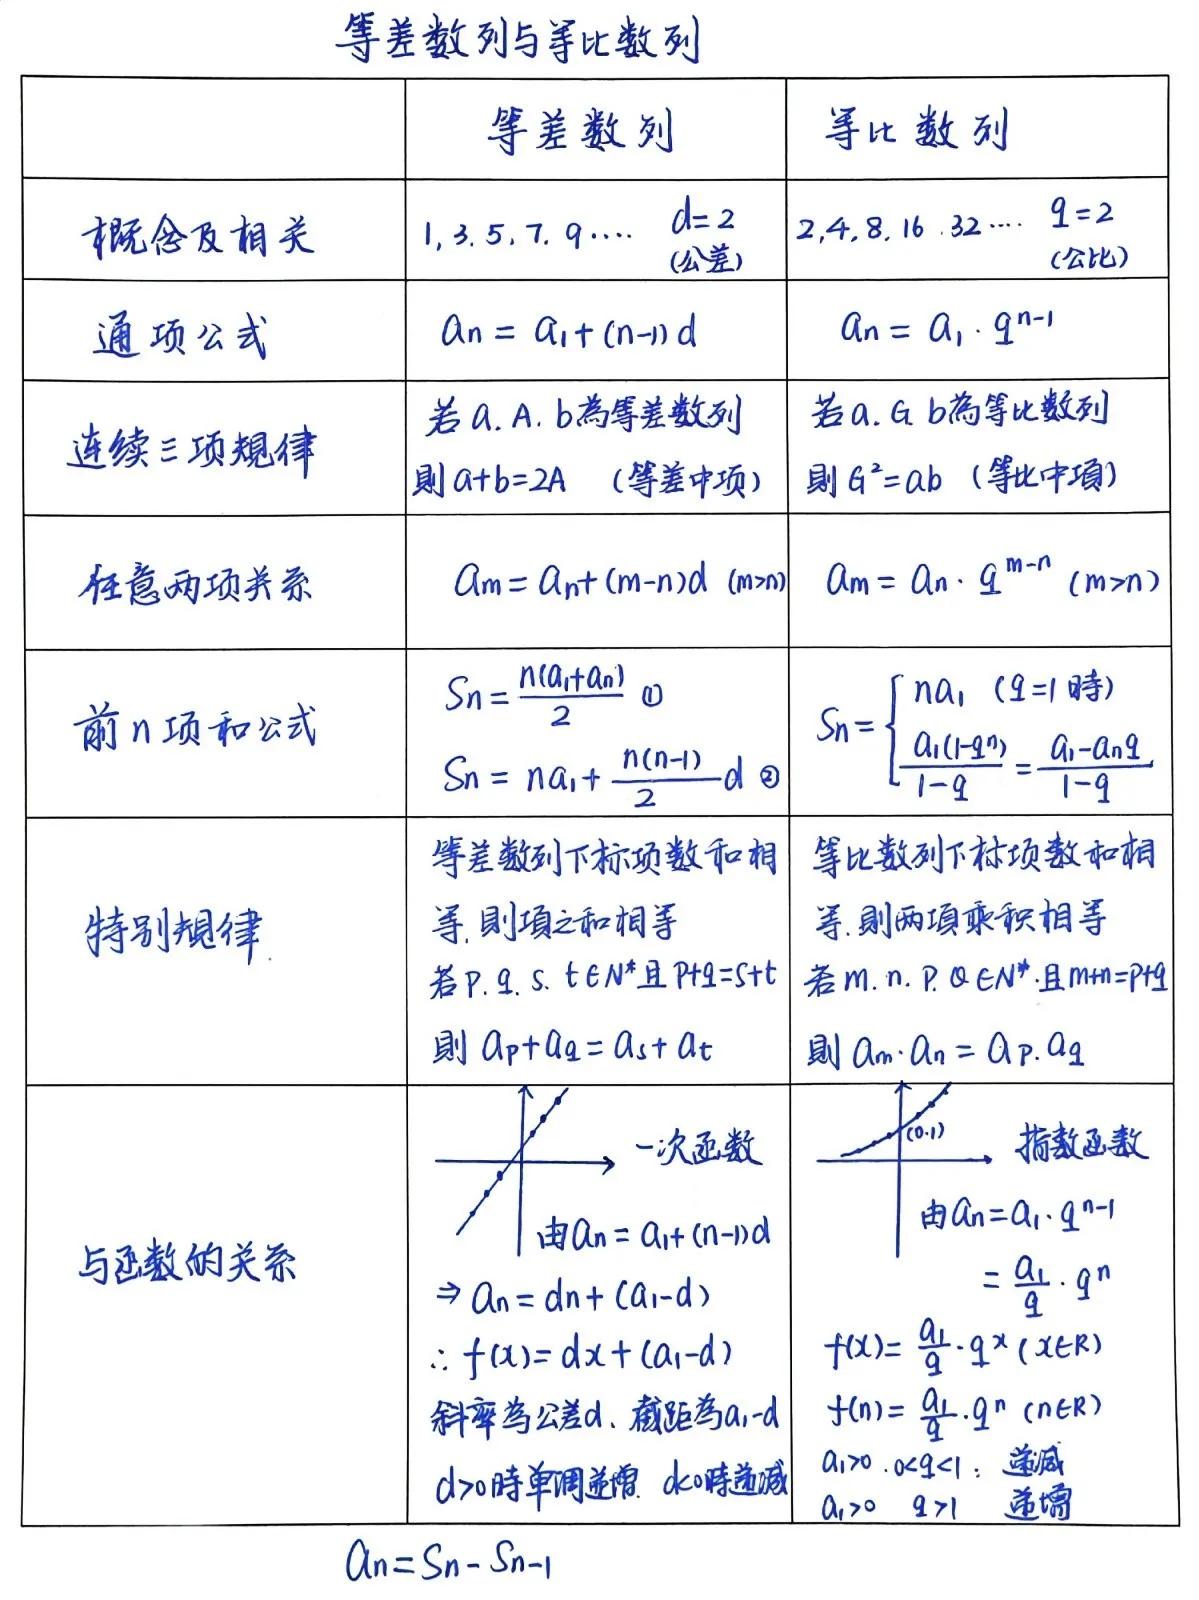 等差数列与等比数列
等差数列
等比数列
概念及相关
1, 3. 5, 7. 9.... d=2
(公差)
2,4,8,16.32.... q=2
(公比)
通项公式
an = a₁+(n-1)d
an = a₁·qⁿ⁻¹
连续三项规律
若a.A.b為等差数列
則a+b=2A (等差中项)
若a.G.b為等比数列
則G²=ab (等比中項)
任意两项关系
am = an+(m-n)d (m>n)
am = an·q^(m-n) (m>n)
前n项和公式
Sn = n(a₁+an)/2 ①
Sn = na₁+ n(n-1)/2 d ②
Sn = { na₁ (q=1時)
a₁(1-qⁿ)/1-q = a₁-anq/1-q
特别规律.
等差数列下标项数和相
等,則項之和相等
若p.q.s.t∈N*且p+q=s+t
則 ap+aq=as+at
等比数列下标项数和相
等.則两項乘积相等
若m.n.p.Q∈N*.且m+n=p+q
則 am·an = ap.aq
与函数的关系
一次函数
由an = a₁+(n-1)d
⇒ an = dn+(a₁-d)
∴ f(x)=dx+(a₁-d)
斜率為公差d、截距為a₁-d
d>0時单调递增. d<0時递减
(0.1)
指数函数
由an=a₁·qⁿ⁻¹
= a₁/q · qⁿ
f(x)= a₁/q · qˣ (x∈R)
f(n)= a₁/q · qⁿ (n∈R)
a₁>0 . 0<q<1 : 递减
a₁>0 q>1 递增
an=Sn-Sn-1